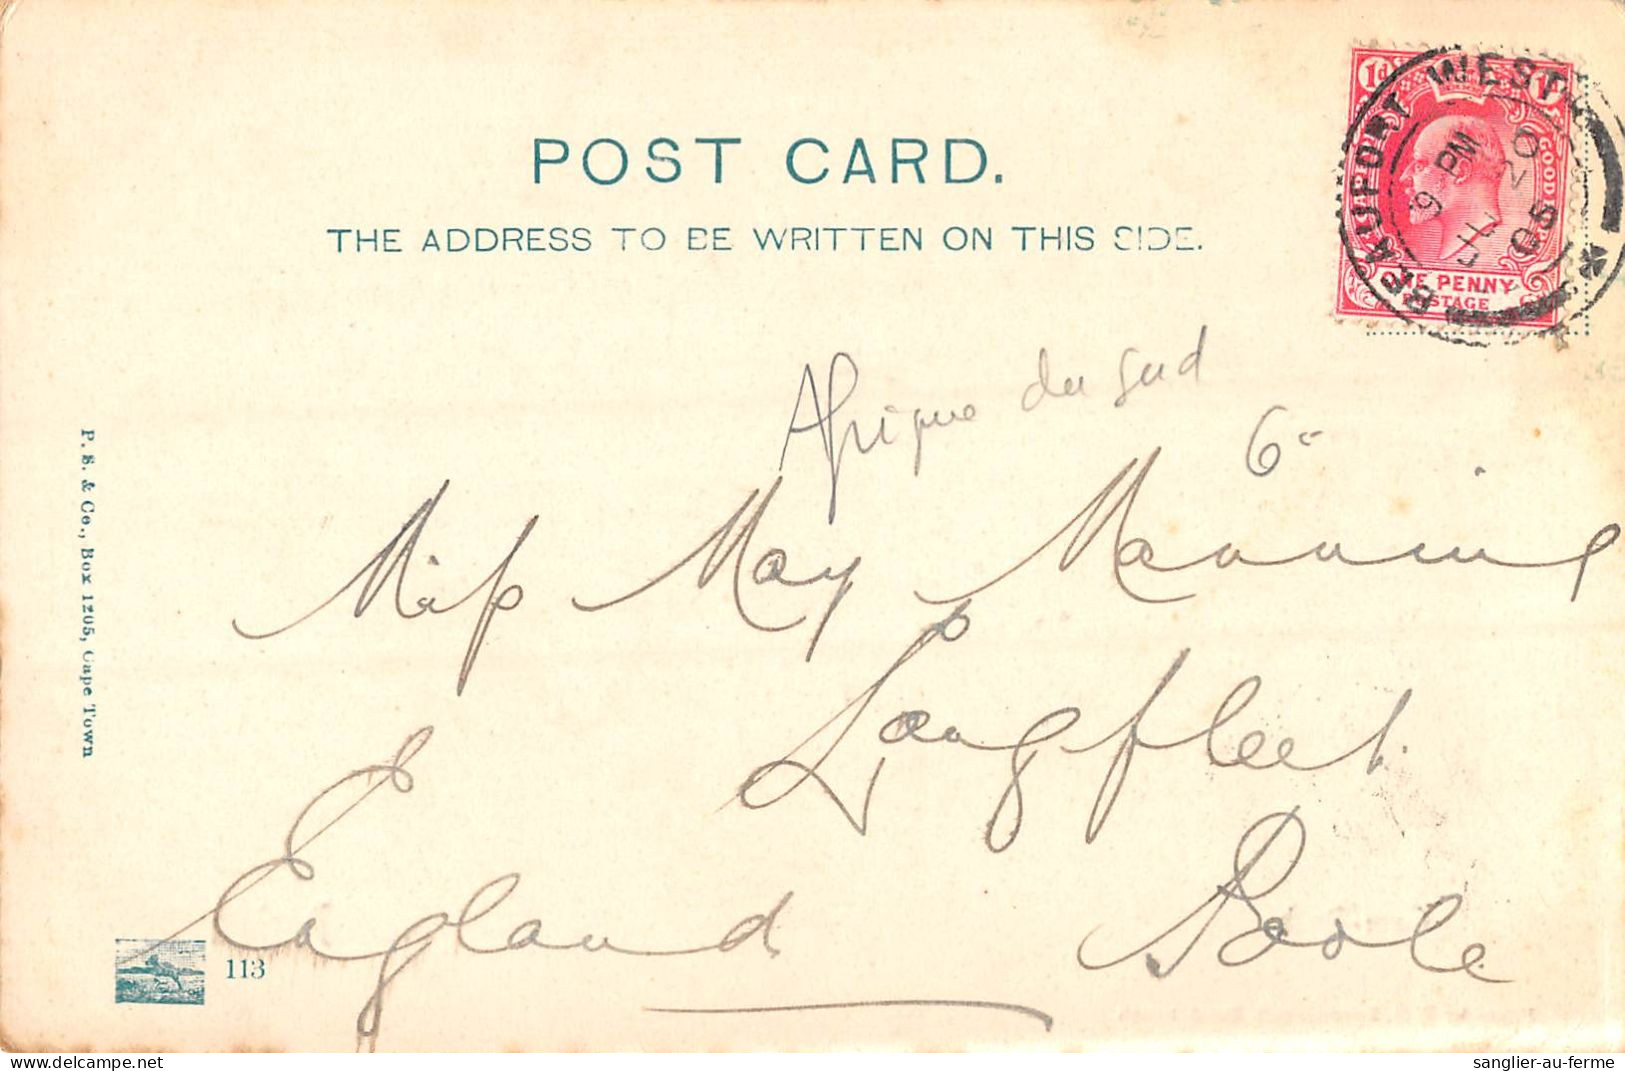 POST CARD.
THE ADDRESS TO BE WRITTEN ON THIS SIDE.
1d 1d
GOOD
ONE PENNY
POSTAGE
BEAUFORT WEST
9 PM
JU 20
05
Afrique du Sud
6-
Miss May Manning
Longfleet
Poole
England
P. S. & Co., Box 1205, Cape Town
113
sanglier-au-ferme